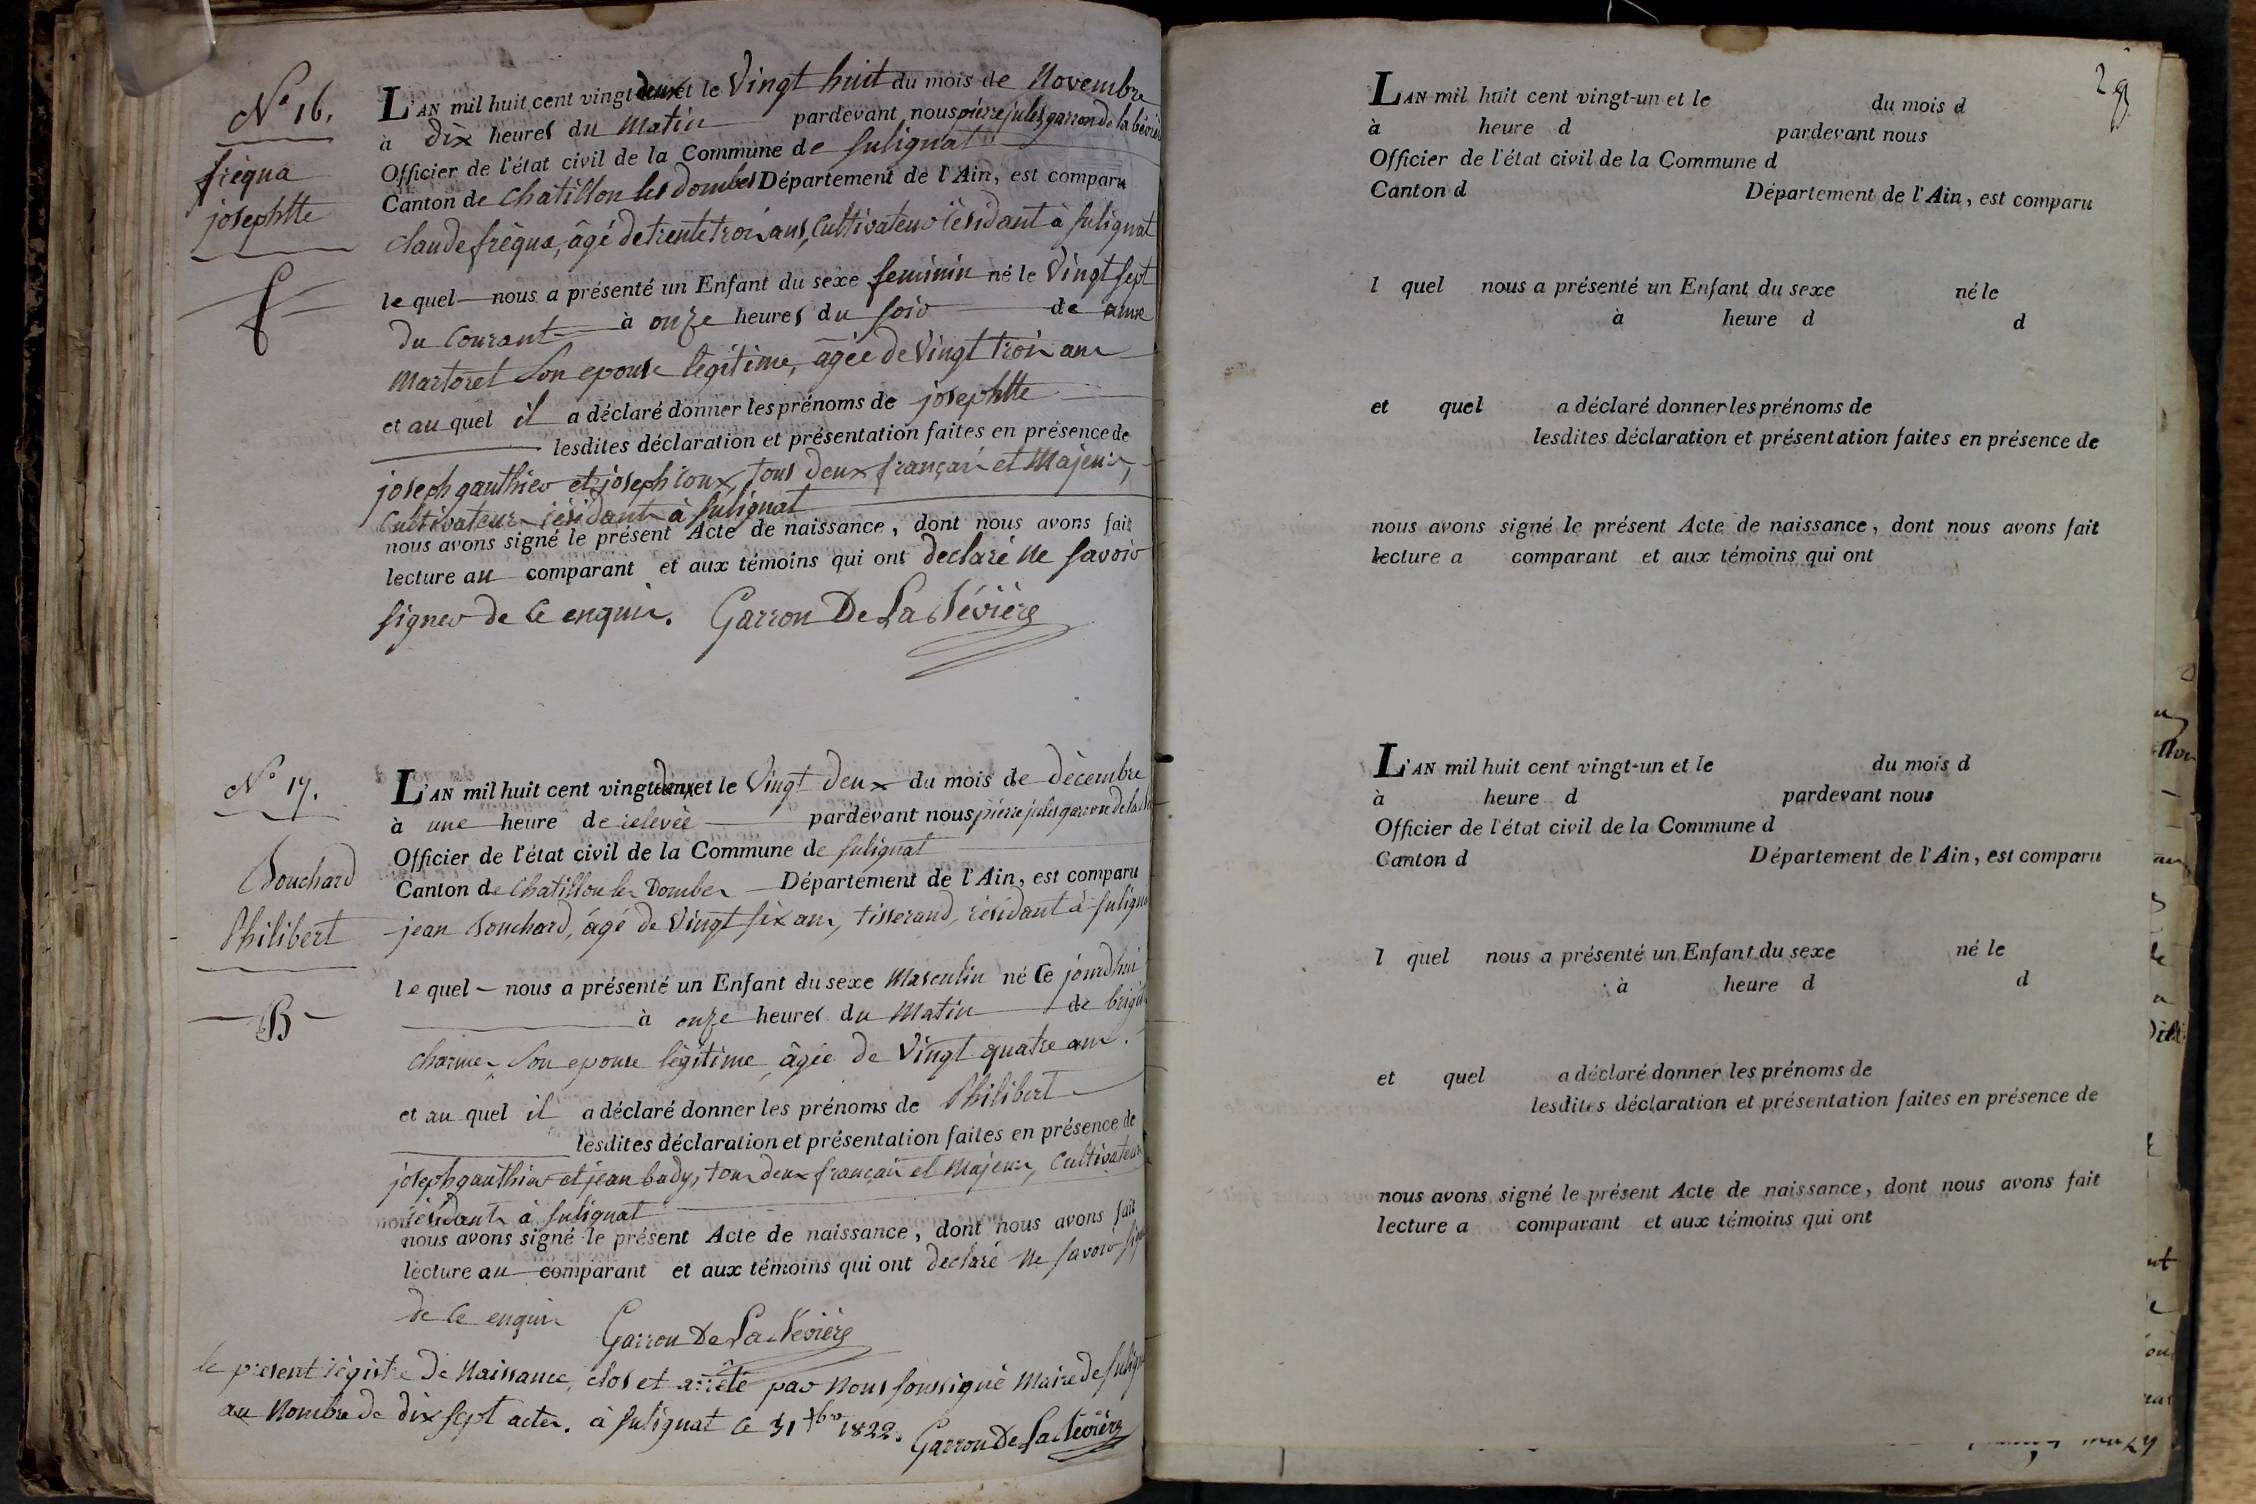 N° 16.
frèqua
josephtte
f
L'AN mil huit cent vingt deux et le Vingt huit du mois de Novembre
à dix heures du Matin pardevant nous pierre jules garron de la bévière
Officier de l'état civil de la Commune de Sulignat
Canton de Chatillon les Dombes Département de l'Ain, est comparu
claude frèqua, âgé de trente trois ans, Cultivateur résidant à Sulignat
le quel nous a présenté un Enfant du sexe feminin né le Vingt sept
du Courant à onze heures du soir de anne
Martoret Son epouse légitime, âgée de Vingt trois ans
et au quel il a déclaré donner les prénoms de josephtte
lesdites déclaration et présentation faites en présence de
joseph gauthier et joseph ioux, tous deux français et Majeurs,
Cultivateurs résidants à Sulignat
nous avons signé le présent Acte de naissance, dont nous avons fait
lecture au comparant et aux témoins qui ont declaré ne savoir
signer de Ce enquis. Garron De La Bévière
N° 17.
Bouchard
Philibert
B
L'AN mil huit cent vingt deux et le Vingt deux du mois de décembre
à une heure de relevée pardevant nous pierre jules garron de la
Officier de l'état civil de la Commune de Sulignat
Canton de Chatillon les Dombes Département de l'Ain, est comparu
jean Bouchard, âgé de Vingt six ans, tisserand, résidant à Sulignat
le quel nous a présenté un Enfant du sexe Masculin né Ce jourdhui
à onze heures du Matin de brigitte
charmes Son epouse légitime, âgée de Vingt quatre ans.
et au quel il a déclaré donner les prénoms de Philibert
lesdites déclaration et présentation faites en présence de
joseph gauthier et jean bady, tous deux français et Majeurs, Cultivateurs
résidants à Sulignat
nous avons signé le présent Acte de naissance, dont nous avons fait
lecture au comparant et aux témoins qui ont declaré ne savoir signer
de Ce enquis Garron De La Bévière
le present régistre de Naissance, clos et arrêté par Nous soussigné Maire de Sulignat
au Nombre de dix sept actes. à Sulignat le 31 xbre 1822. Garron De La Bévière
29
L'AN mil huit cent vingt-un et le du mois d
à heure d pardevant nous
Officier de l'état civil de la Commune d
Canton d Département de l'Ain, est comparu
l quel nous a présenté un Enfant du sexe né le
à heure d d
et quel a déclaré donner les prénoms de
lesdites déclaration et présentation faites en présence de
nous avons signé le présent Acte de naissance, dont nous avons fait
lecture a comparant et aux témoins qui ont
L'AN mil huit cent vingt-un et le du mois d
à heure d pardevant nous
Officier de l'état civil de la Commune d
Canton d Département de l'Ain, est comparu
l quel nous a présenté un Enfant du sexe né le
à heure d d
et quel a déclaré donner les prénoms de
lesdites déclaration et présentation faites en présence de
nous avons signé le présent Acte de naissance, dont nous avons fait
lecture a comparant et aux témoins qui ont